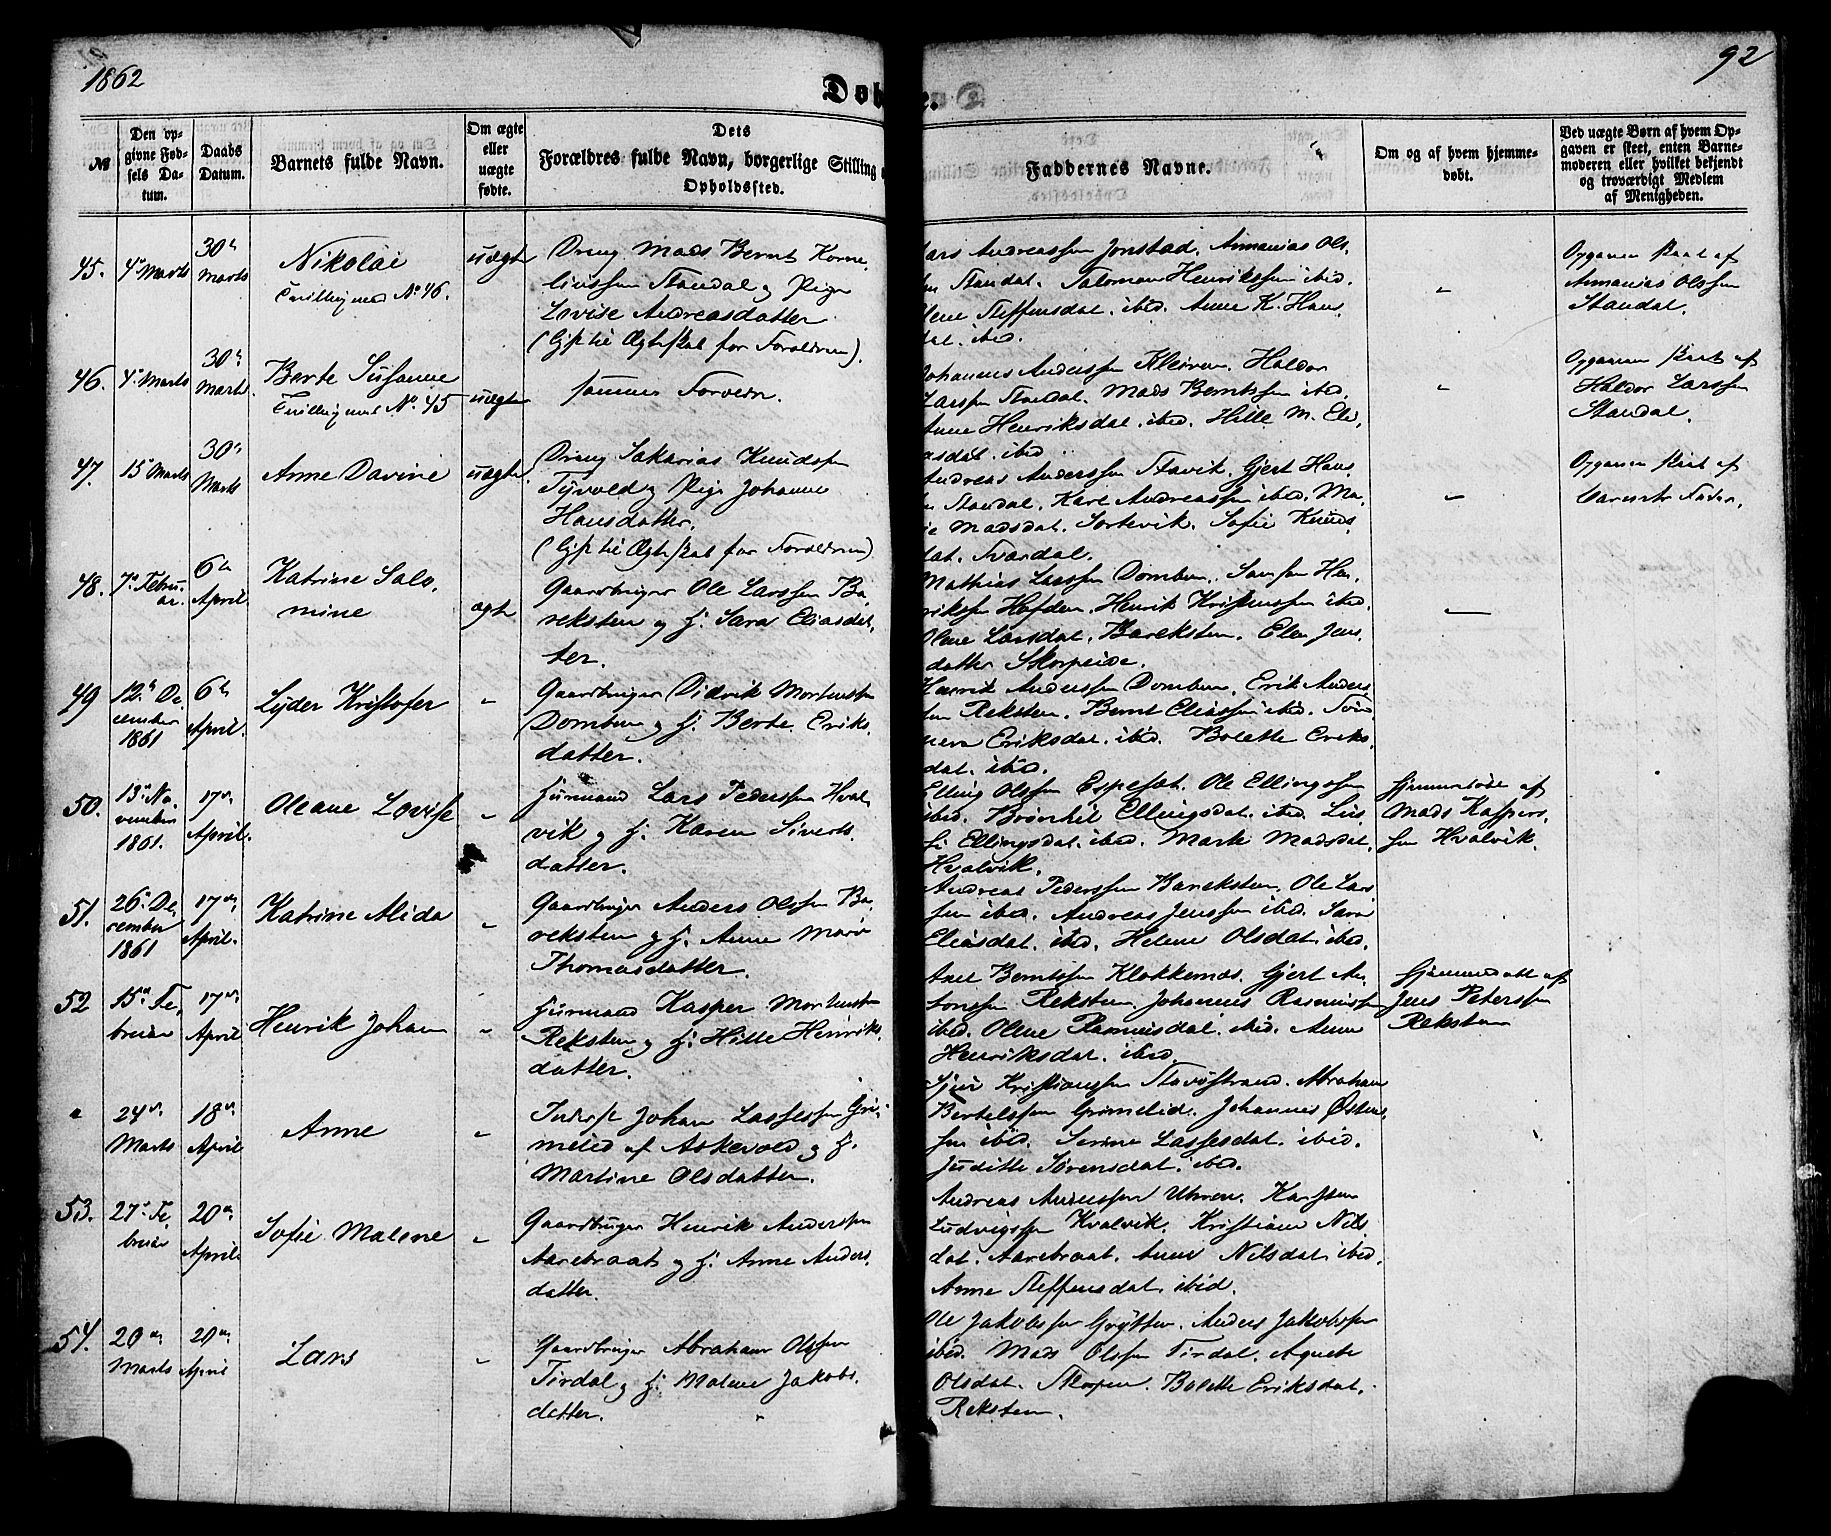 1862
92
Døbte.
№
Den opgivne Fødsels Datum.
Daabs Datum.
Barnets fulde Navn.
Om ægte eller uægte fødte.
Dets Forældres fulde Navn, borgerlige Stilling
Opholdssted.
Faddernes Navne.
Om og af hvem hjemmedøbt.
Ved uægte Børn af hvem Opgaven er skeet, enten Barnemoderen eller hvilket bekjendt og troværdigt Medlem af Menigheden.
45.
4de Marts
30te Marts
Nikolai
Tvilling med No 46.
uægte
Dreng Mads Bernt Korne,
liussen Standal og Pige
Lovise Andreasdatter
(Gift til Ægteskab for Forældren).
Lars Andreassen Jonstad. Ananias Ols,
sen Standal. Salomon Henrikssen ibid.
Olene Steffensdat. ibid. Anne K. Hans,
dat. ibid.
"
Opgaven skeet af
Ananias Olssen
Standal.
46.
4de Marts
30te Marts.
Berte Susanne
Tvilling med No. 45
uægte
sammes Forældre
Johannes Anderssen Kleiven. Haldor
Larssen Standal. Mads Berntssen ibid.
Anne Henriksdat. ibid. Hille M. Eli,
asdat. ibid
"
Opgaven skeet af
Haldor Larssen
Standal.
47.
15de Marts
30te Marts
Anne Davine
uægte
Dreng Sakarias Knudssen
Tyvold og Pige Johanne
Hansdatter.
(Gift til Ægteskab for Forældren)
Andreas Anderssen Stavik. Gjert Hans,
sen Standal. Karl Andreassen ibid. Ma,
rie Madsdat. Sortevik. Sofie Knuds,
dat. Svardal.
"
Opgaven skeet af
Barnets Fader.
48.
7de Februar.
6te April.
Katrine Salo,
mine
ægte
Gaardbruger Ole Larssen Ba,
reksten og H. Sara Eliasdat,
ter.
Mathias Larssen Domben. Hen,
rikssen Hofden. Henrik Kristenssen ibid.
Olene Larsdat. Bareksten. Elen Jens,
datter Skorpeide.
"
49
12te December 1861
6te April.
Lyder Kristofer
"
Gaardbruger Didrik Mortenssen
Domben og H. Berte Eriks,
datter.
Henrik Anderssen Domben. Erik Anders,
sen Reksten. Bernt Eliassen ibid.
Eriksdat. ibid. Bolette Eriks,
dat. ibid.
50.
13de November 1861.
17de April.
Oleane Lovise
"
Huusmand Lars Pederssen Hval,
vik og H. Karen Siverts,
datter.
Elling Olssen Espeset. Ole Ellingssen
ibid. Brønhil Ellingsdat. ibid. Lis,
si Ellingsdat. ibid. Mark Madsdat.
Hvalvik.
Hjemmedøbt af
Mads Kaspers,
sen Hvalvik.
51.
26de December 1861
17de April.
Katrine Alida
"
Gaardbruger Anders Olssen Ba,
reksten og H. Anne Marie
Thomasdatter.
Andreas Pederssen Bareksten. Ole Lars
sen ibid. Andreas Jenssen ibid. Sara
Eliasdat. ibid. Helene Olsdat. ibid.
52
15de Februar
17de April
Henrik Johan
"
Huusmand Kasper Mortenssen
Reksten og H. Hille Henriks,
datter.
Axel Berntssen Klokkernes. Gjert An,
tonssen Reksten. Johannes Rasmussen
ibid. Olene Rasmusdat. ibid. Anne
Henriksdat. ibid.
Hjemmedøbt af
Jens Peterssen
Reksten
"
24de Marts
18de April
Anne
"
Inderst Johan Lassessen Gri,
melid af Askevold og H.
Martine Olsdatter.
Sjur Kristianssen Stavøstrand. Abraham
Bertelssen Grimelid. Johannes Østens,
sen ibid. Serine Lassesdat. ibid.
Juditte Sørensdat. ibid.
53.
27de Februar
20de April.
Sofie Malene
"
Gaardbruger Henrik Anderssen
Aarebraat og H. Anne Anders,
datter.
Andreas Anderssen Uhren. Karsten
Ludvigssen Hvalvik. Kristiane Nils
dat. Aarebraat. Anne Nilsdat. ibid.
Anne Steffensdat. ibid.
54.
20de Marts
20de April
Lars
"
Gaardbruger Abraham Olssen
Tirdal og H. Malene Jakobs,
datter.
Ole Jakobssen Grytten. Anders Jakobssen
ibid. Mads Olssen Tirdal. Agnete
Olsdat. Skorpen. Bolette Eriksdat.
Reksten.